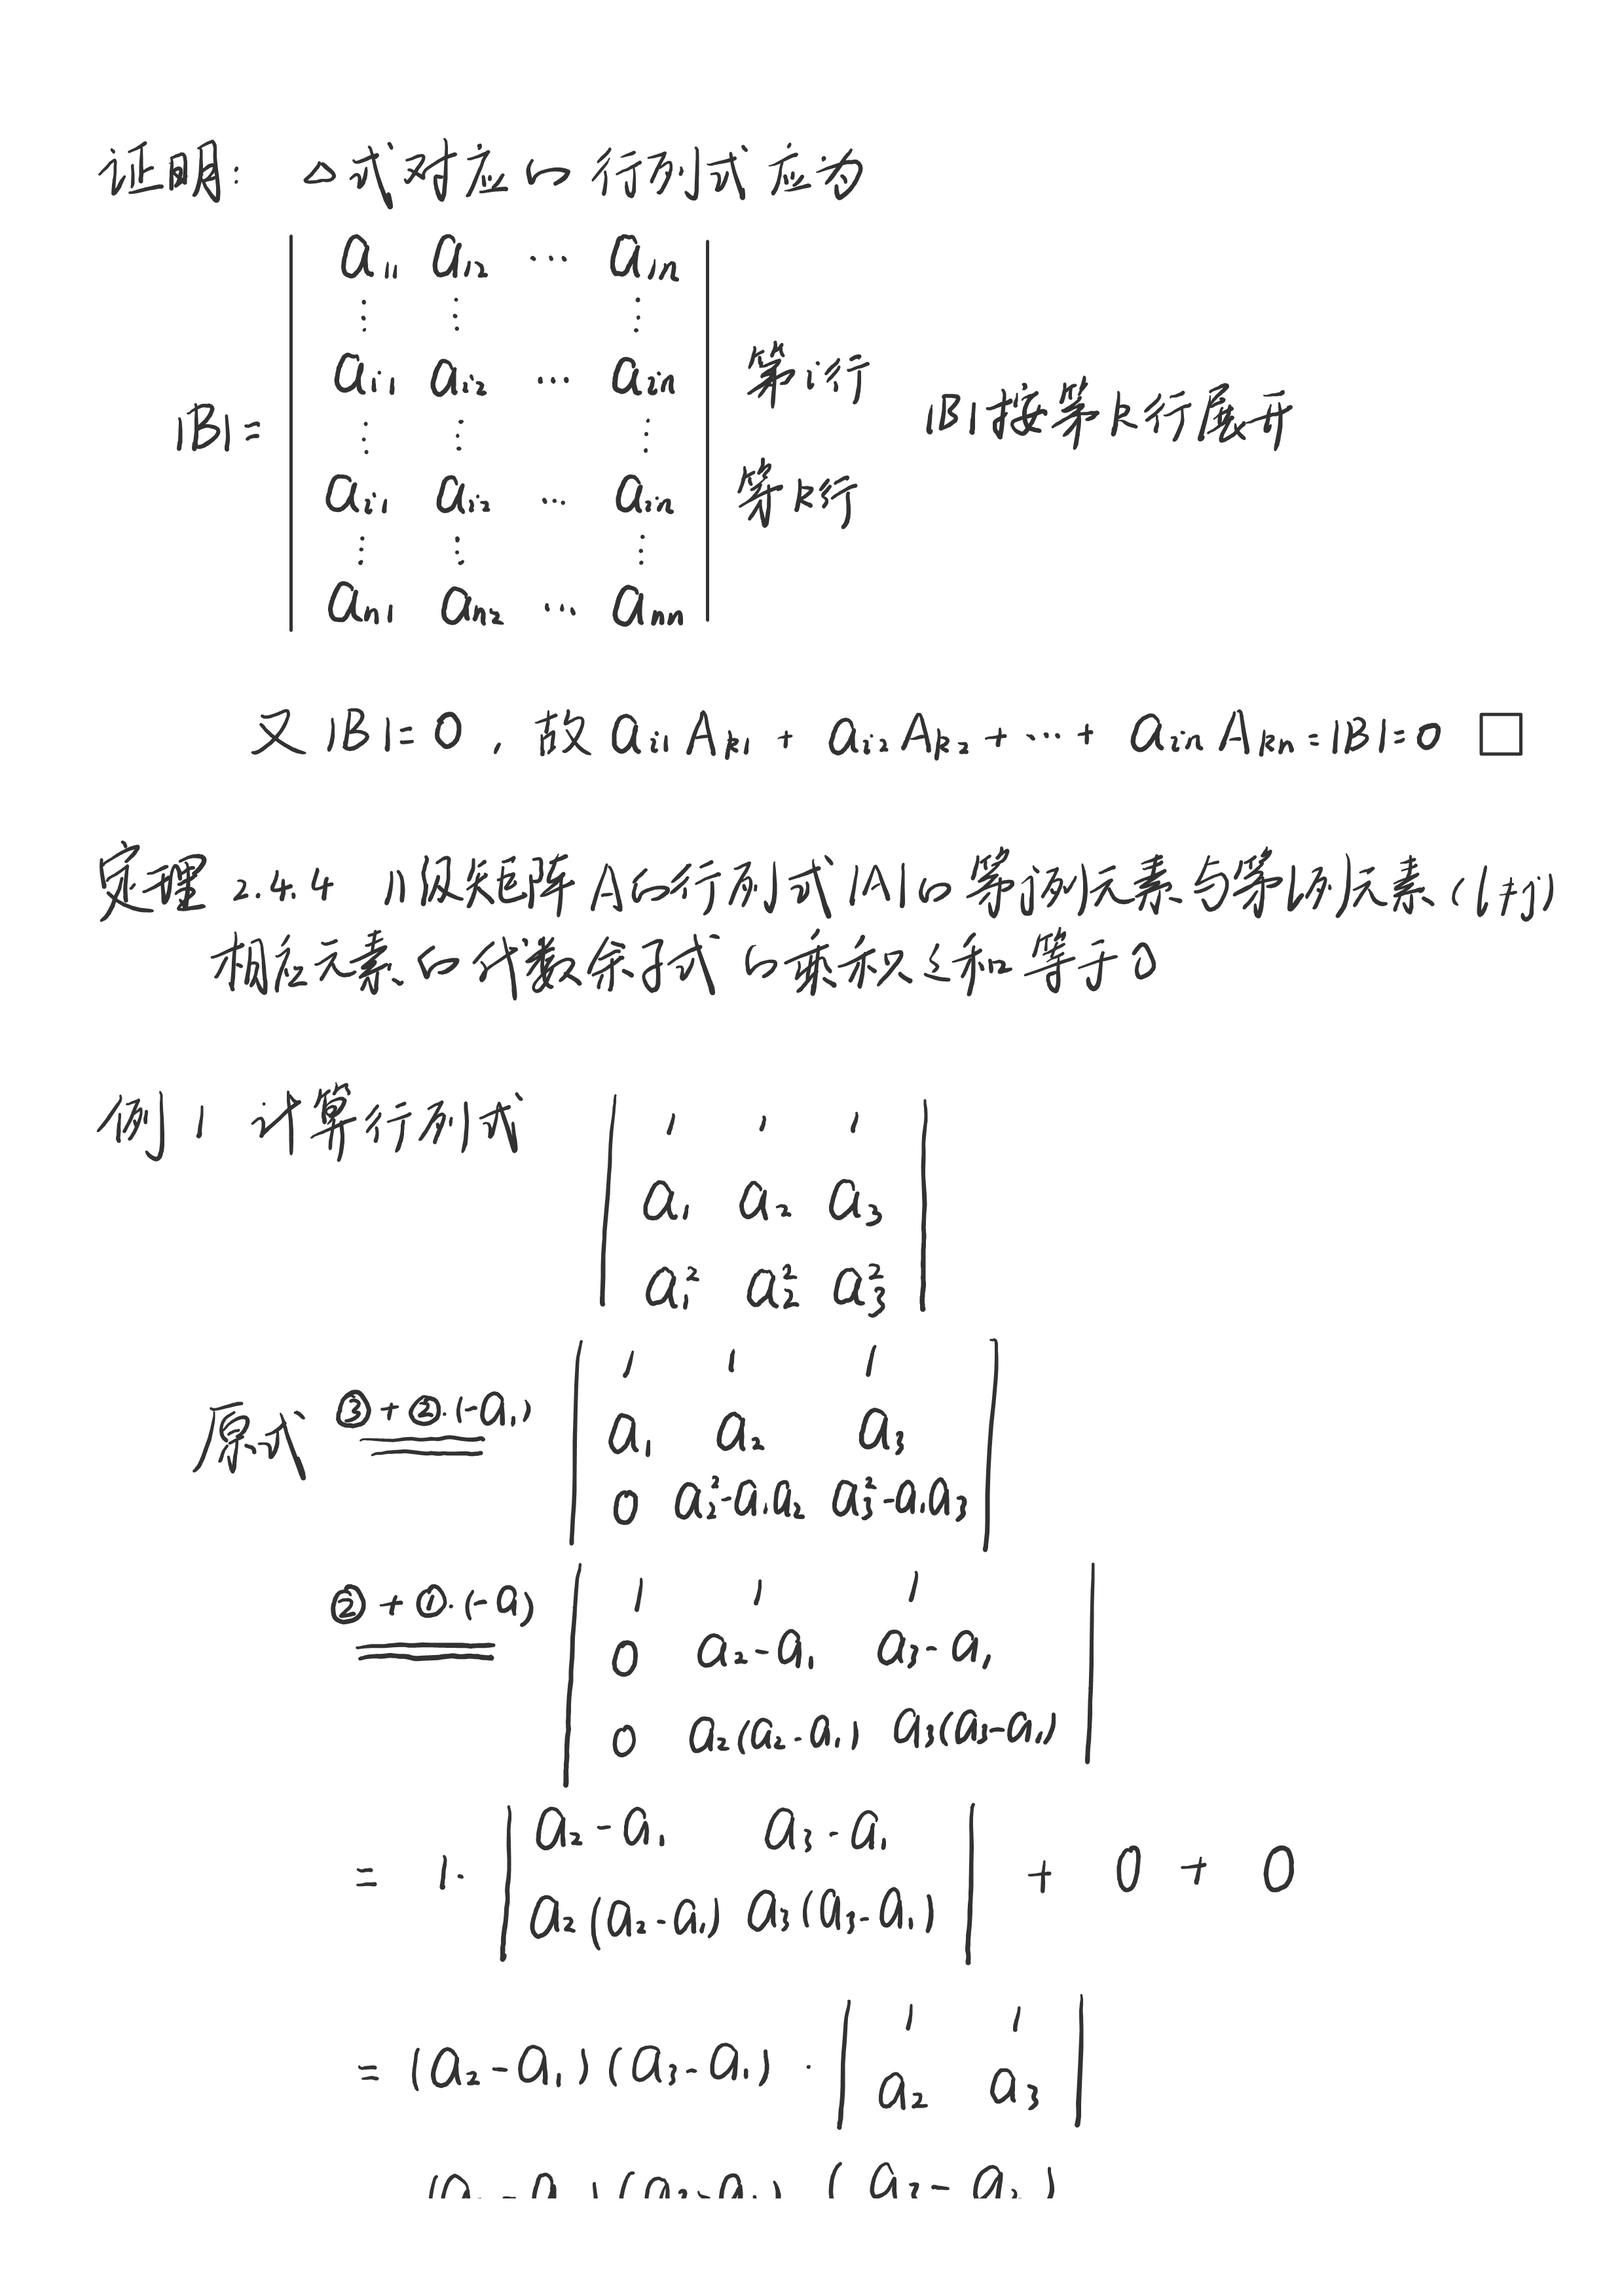 证明： △式对应的行列式应为
|B|= | a₁₁ a₁₂ ⋯ a₁ₙ |
⋮ ⋮ ⋮
aᵢ₁ aᵢ₂ ⋯ aᵢₙ 第i行
|B|按第k行展开
⋮ ⋮ ⋮
aᵢ₁ aᵢ₂ ⋯ aᵢₙ 第k行
⋮ ⋮ ⋮
aₙ₁ aₙ₂ ⋯ aₙₙ
又 |B|=0 , 故 aᵢ₁Aₖ₁ + aᵢ₂Aₖ₂ + ⋯ + aᵢₙAₖₙ = |B| = 0 □
定理 2.4.4 n级矩阵A的行列式|A|的第j列元素与第l列元素(l≠j)
相应元素的代数余子式的乘积之和等于0
例 1 计算行列式 | 1 1 1 |
a₁ a₂ a₃
a₁² a₂² a₃²
原式 ③+②·(-a₁) | 1 1 1 |
a₁ a₂ a₃
0 a₂²-a₁a₂ a₃²-a₁a₃
②+①·(-a) | 1 1 1 |
0 a₂-a₁ a₃-a₁
0 a₂(a₂-a₁) a₃(a₃-a₁)
= 1· | a₂-a₁ a₃-a₁ | + 0 + 0
a₂(a₂-a₁) a₃(a₃-a₁)
= (a₂-a₁)(a₃-a₁) · | 1 1 |
a₂ a₃